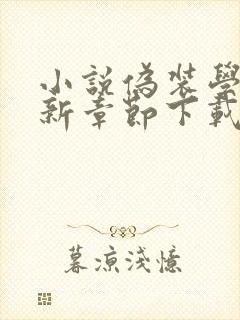 小說偽裝學
新章節下載
暮涼淺憶